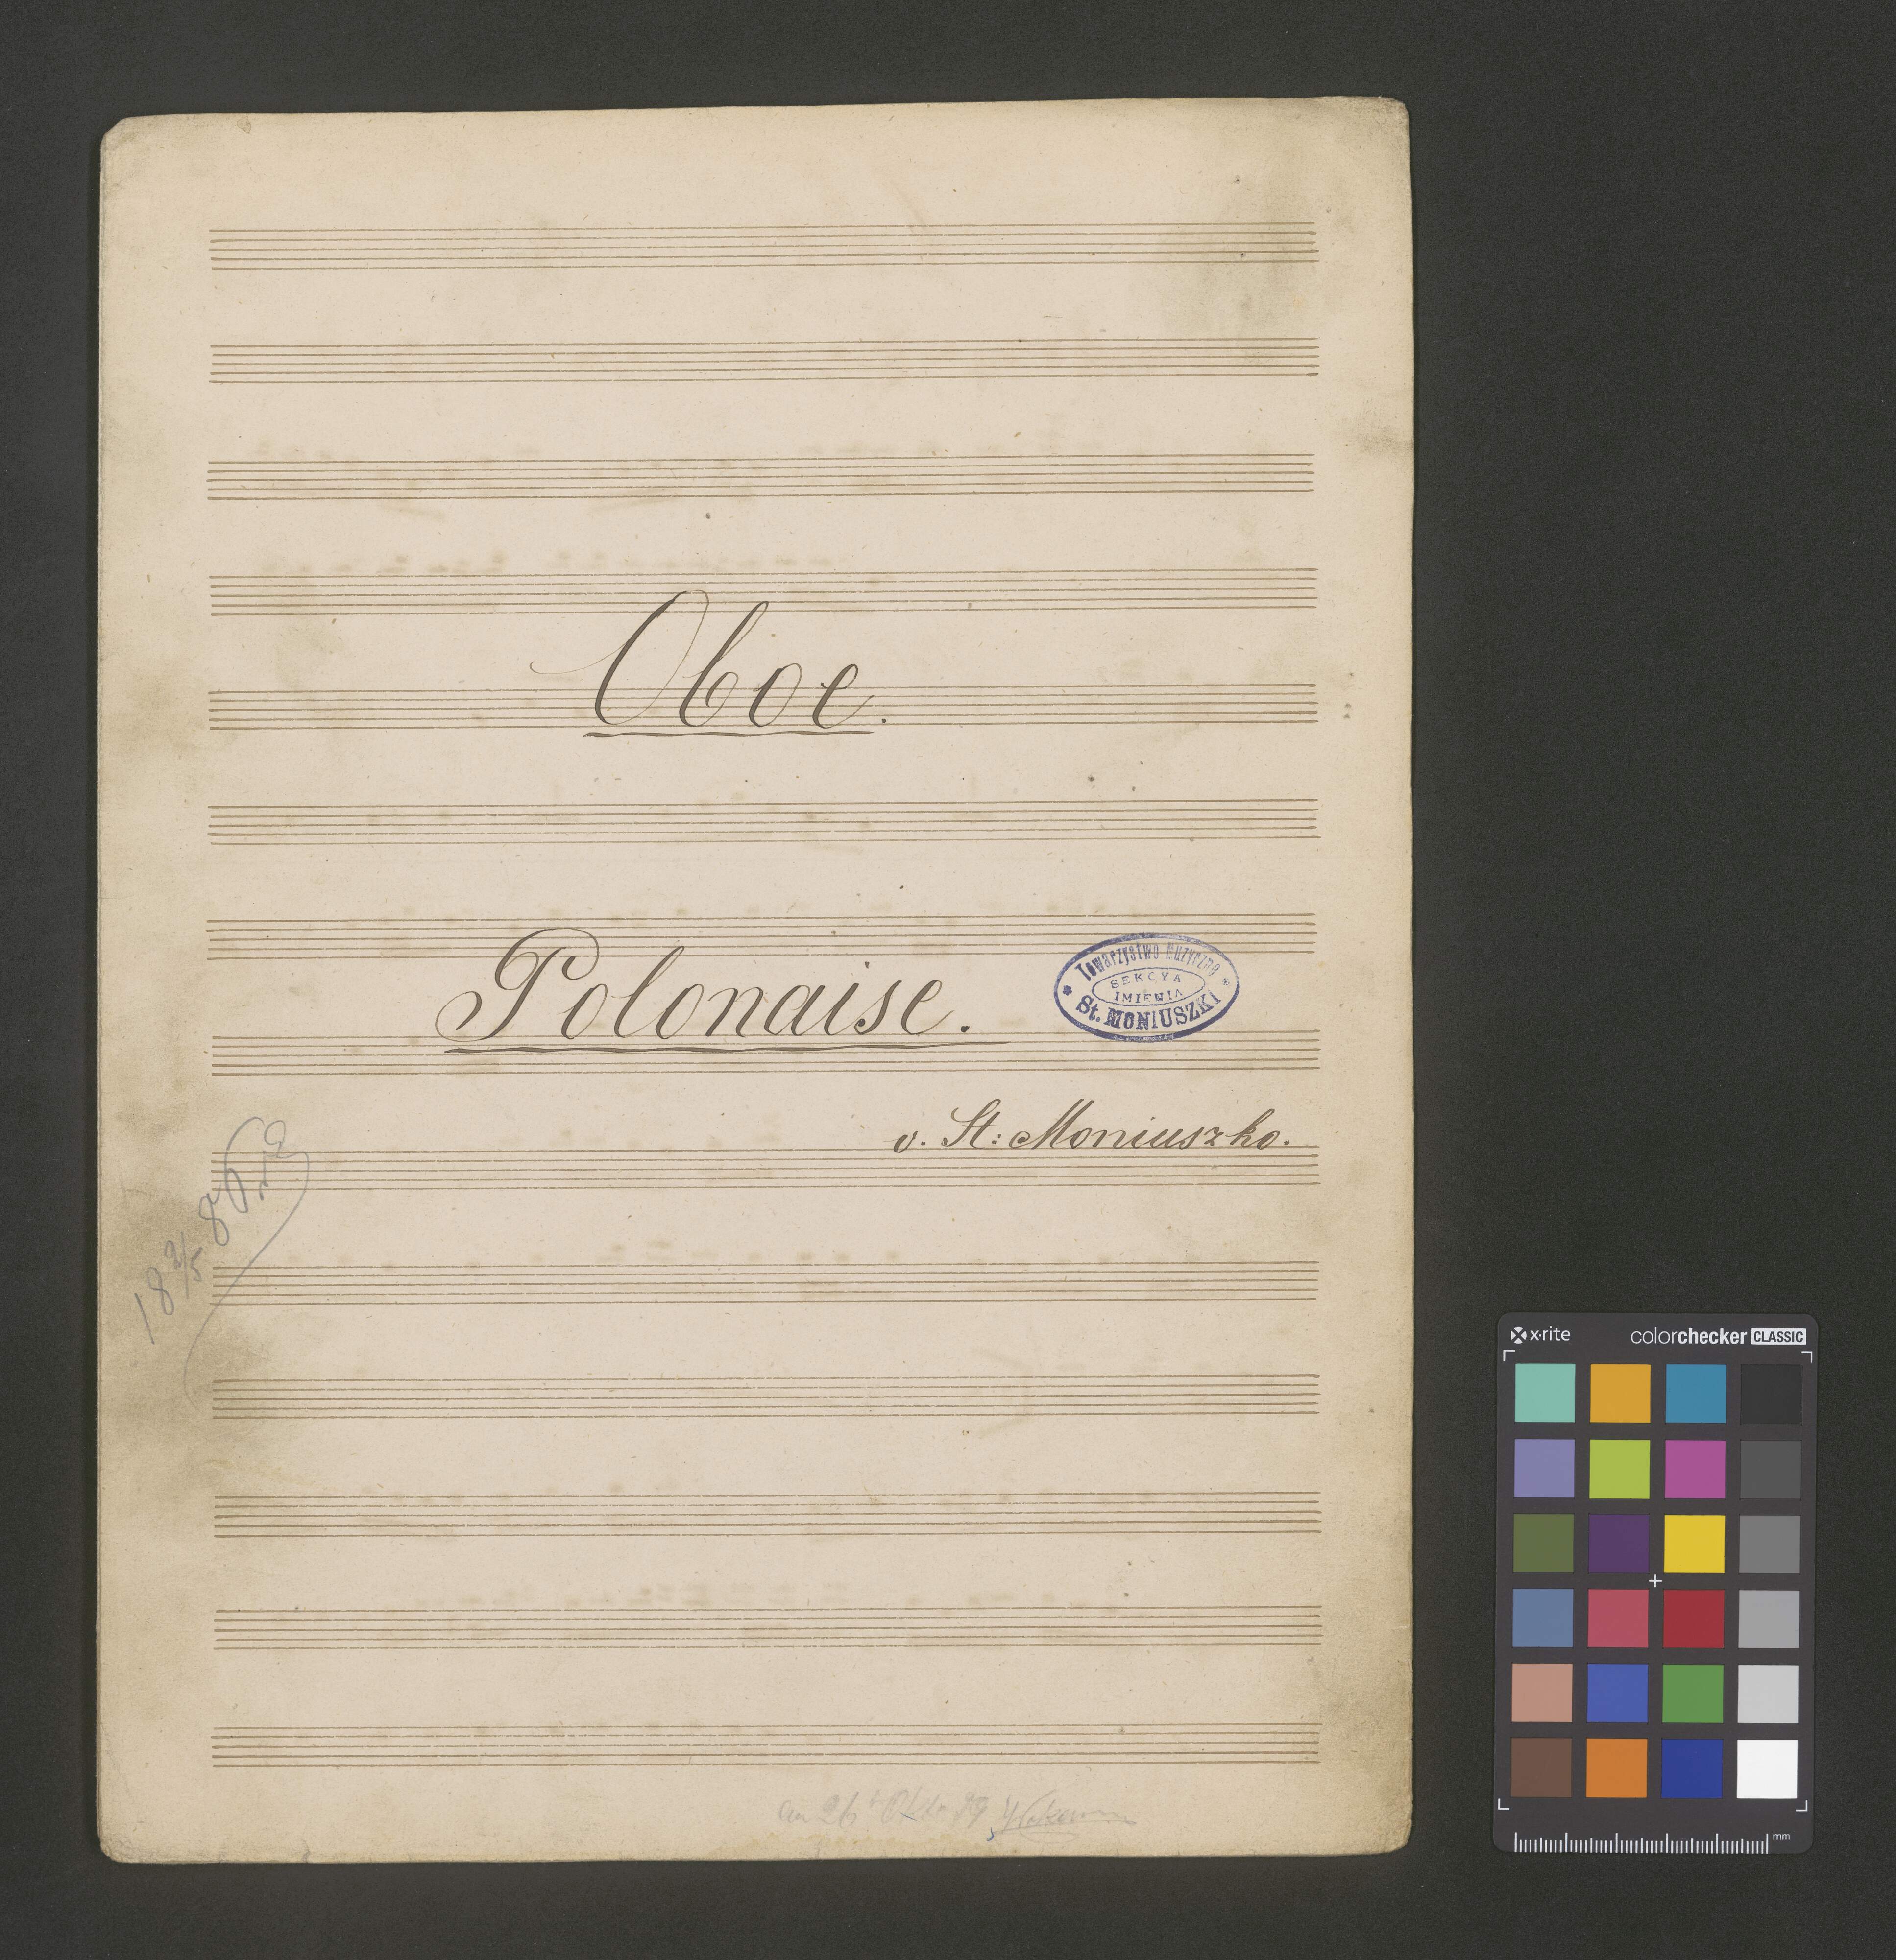 Oboe.
Polonaise.
Towarzystwo Muzyczne
SEKCYA
IMIENIA
St. MONIUSZKI
v. St: Moniuszko.
18 2/5 86
x-rite colorchecker CLASSIC
mm